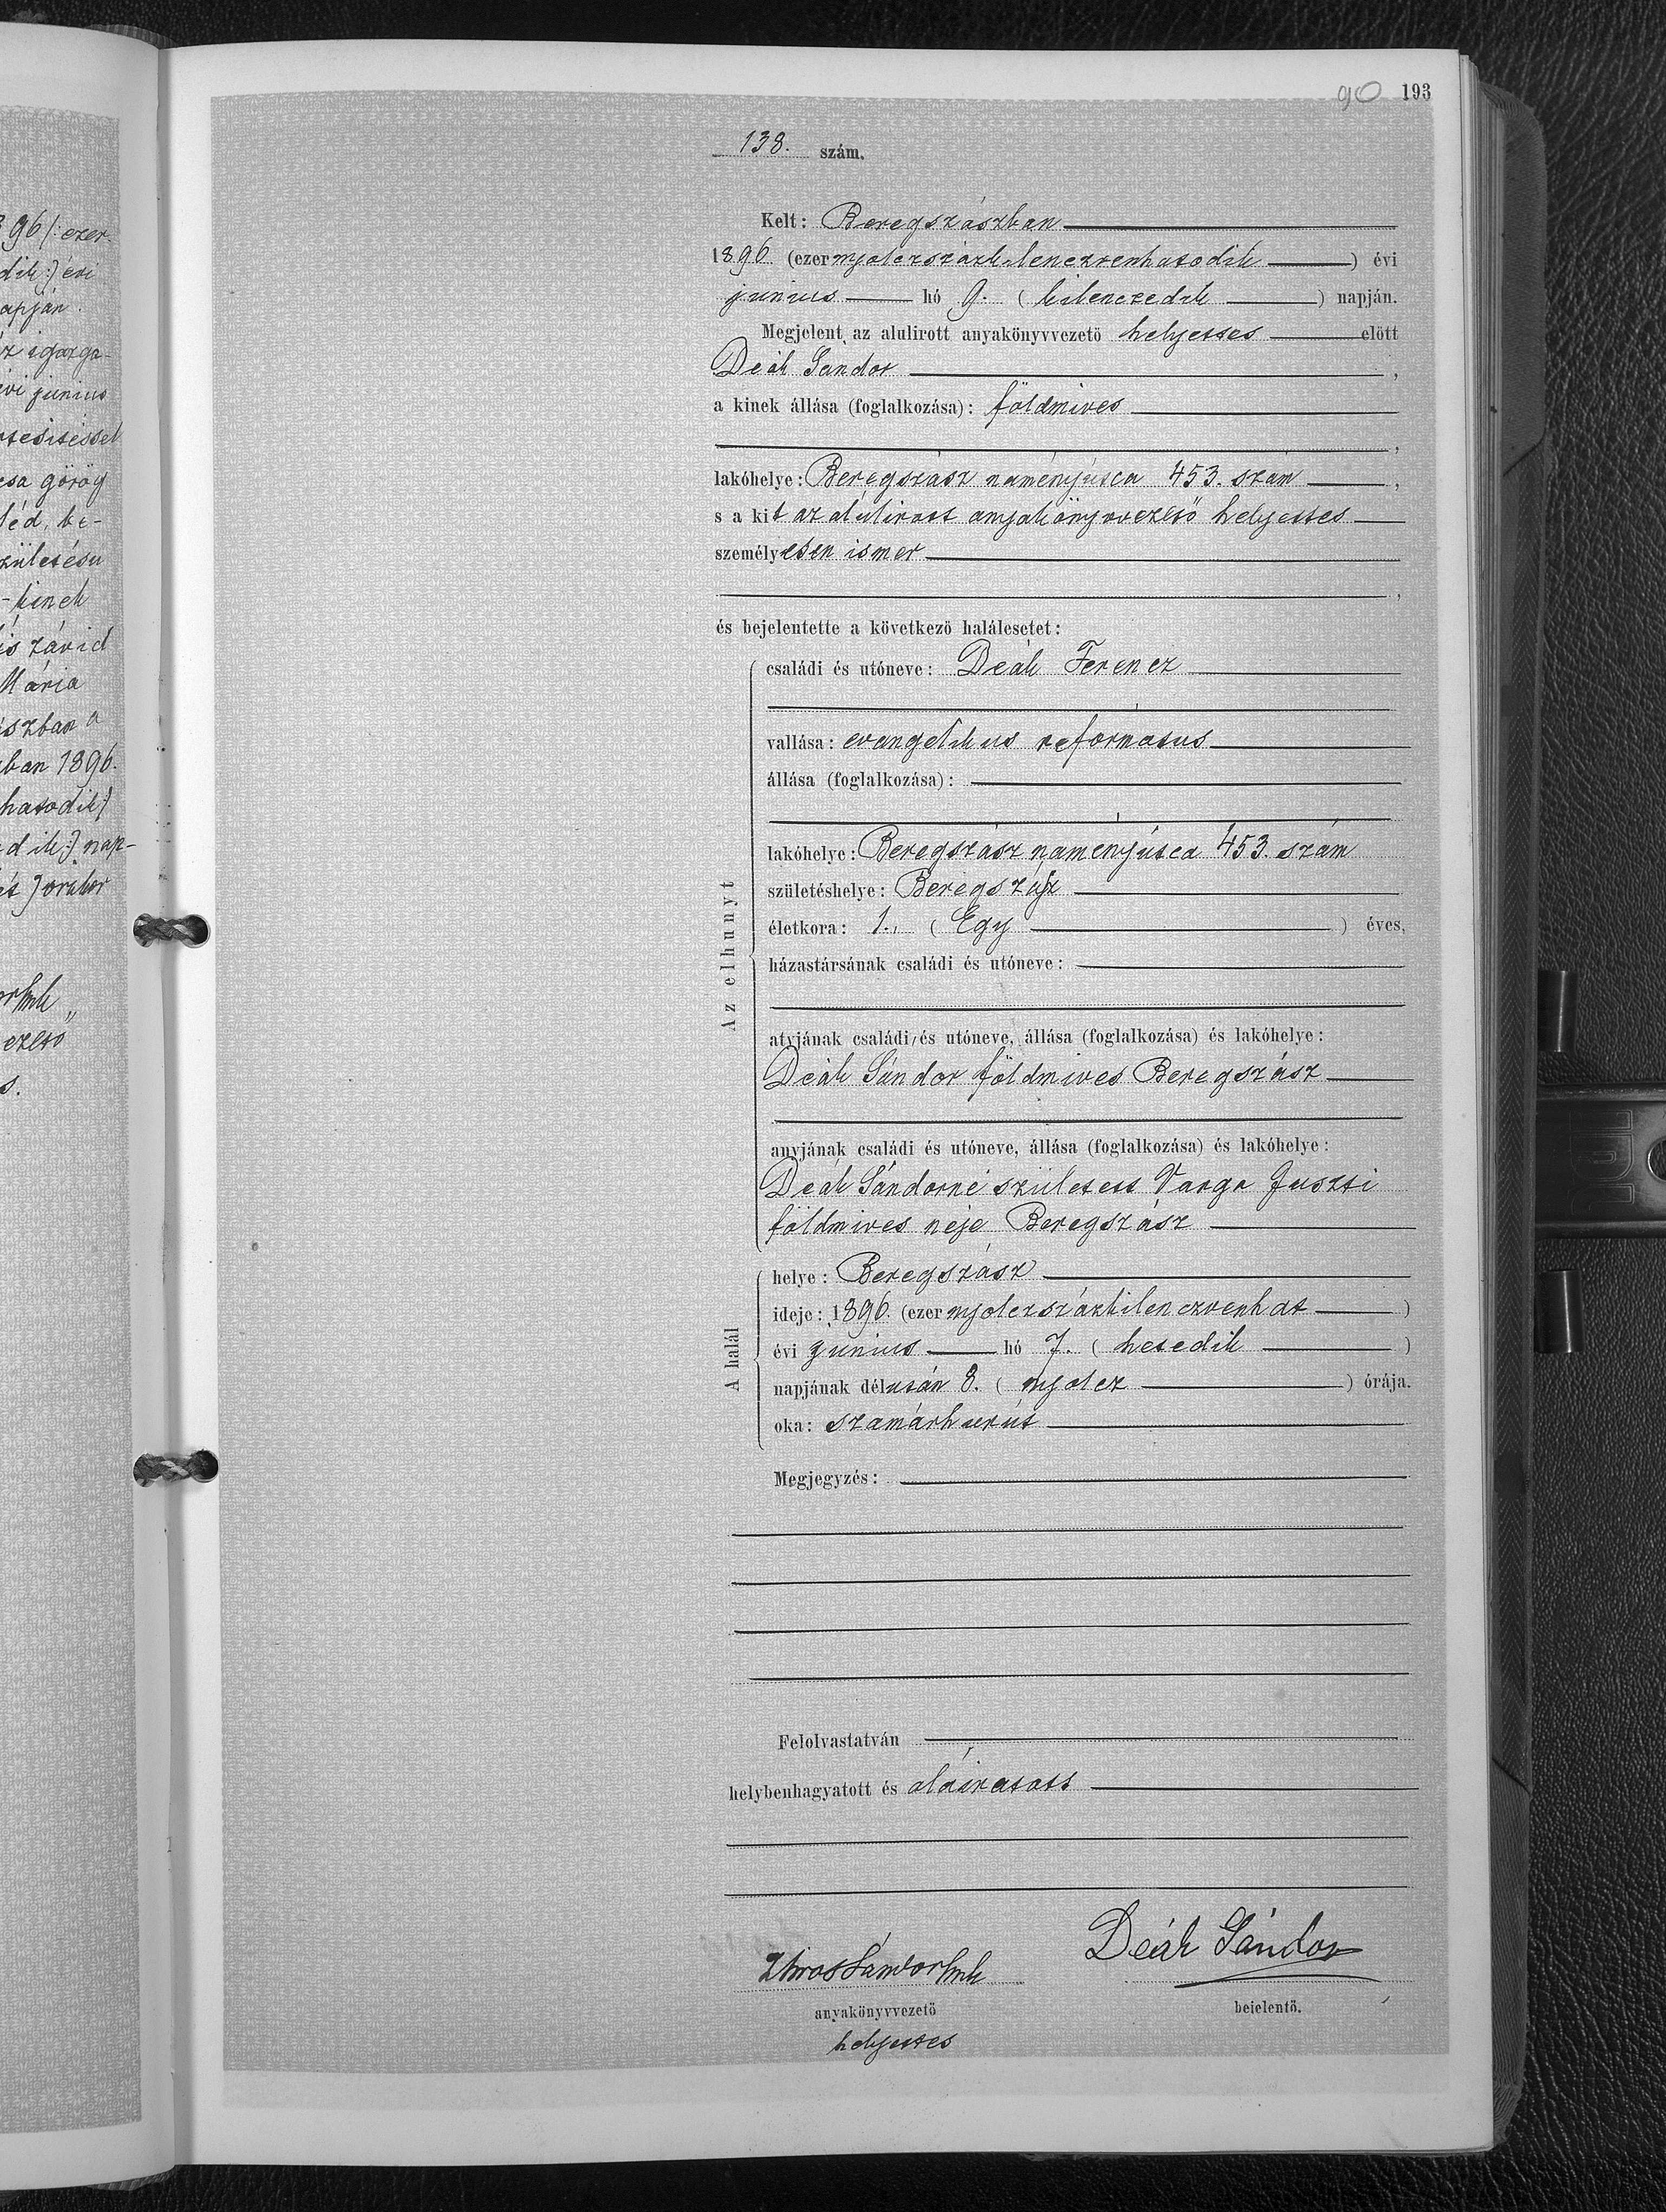 90 193
138. szám.
Kelt: Beregszászban
1896 (ezer nyolczszázkilenczvenhatodik) évi
junius hó 9. (kilenczedik) napján.
Megjelent az alulirott anyakönyvvezető helyettes előtt
Deák Sándor,
a kinek állása (foglalkozása): földmives
,
lakóhelye: Beregszász naményiutca 453. szám,
s a kit az alulirott anyakönyvvezető helyettes
személyesen ismer
,
és bejelentette a következő halálesetet:
Az elhunyt
családi és utóneve: Deák Ferencz
vallása: evangelikus református
állása (foglalkozása):
lakóhelye: Beregszász naményiutca 453. szám
születéshelye: Beregszász
életkora: 1., (Egy) éves,
házastársának családi és utóneve:
atyjának családi és utóneve, állása (foglalkozása) és lakóhelye:
Deák Sándor földmives Beregszász
anyjának családi és utóneve, állása (foglalkozása) és lakóhelye:
Deák Sándorné született Varga Juszti
földmives neje Beregszász
A halál
helye: Beregszász
ideje: 1896. (ezer nyolczszázkilenczvenhat)
évi junius hó 7. (hetedik)
napjának délután 8. (nyolcz) órája.
oka: szamárhurut
Megjegyzés:
Felolvastatván
helybenhagyatott és aláiratott
Deák Sándor
anyakönyvvezető
helyettes
bejelentő.